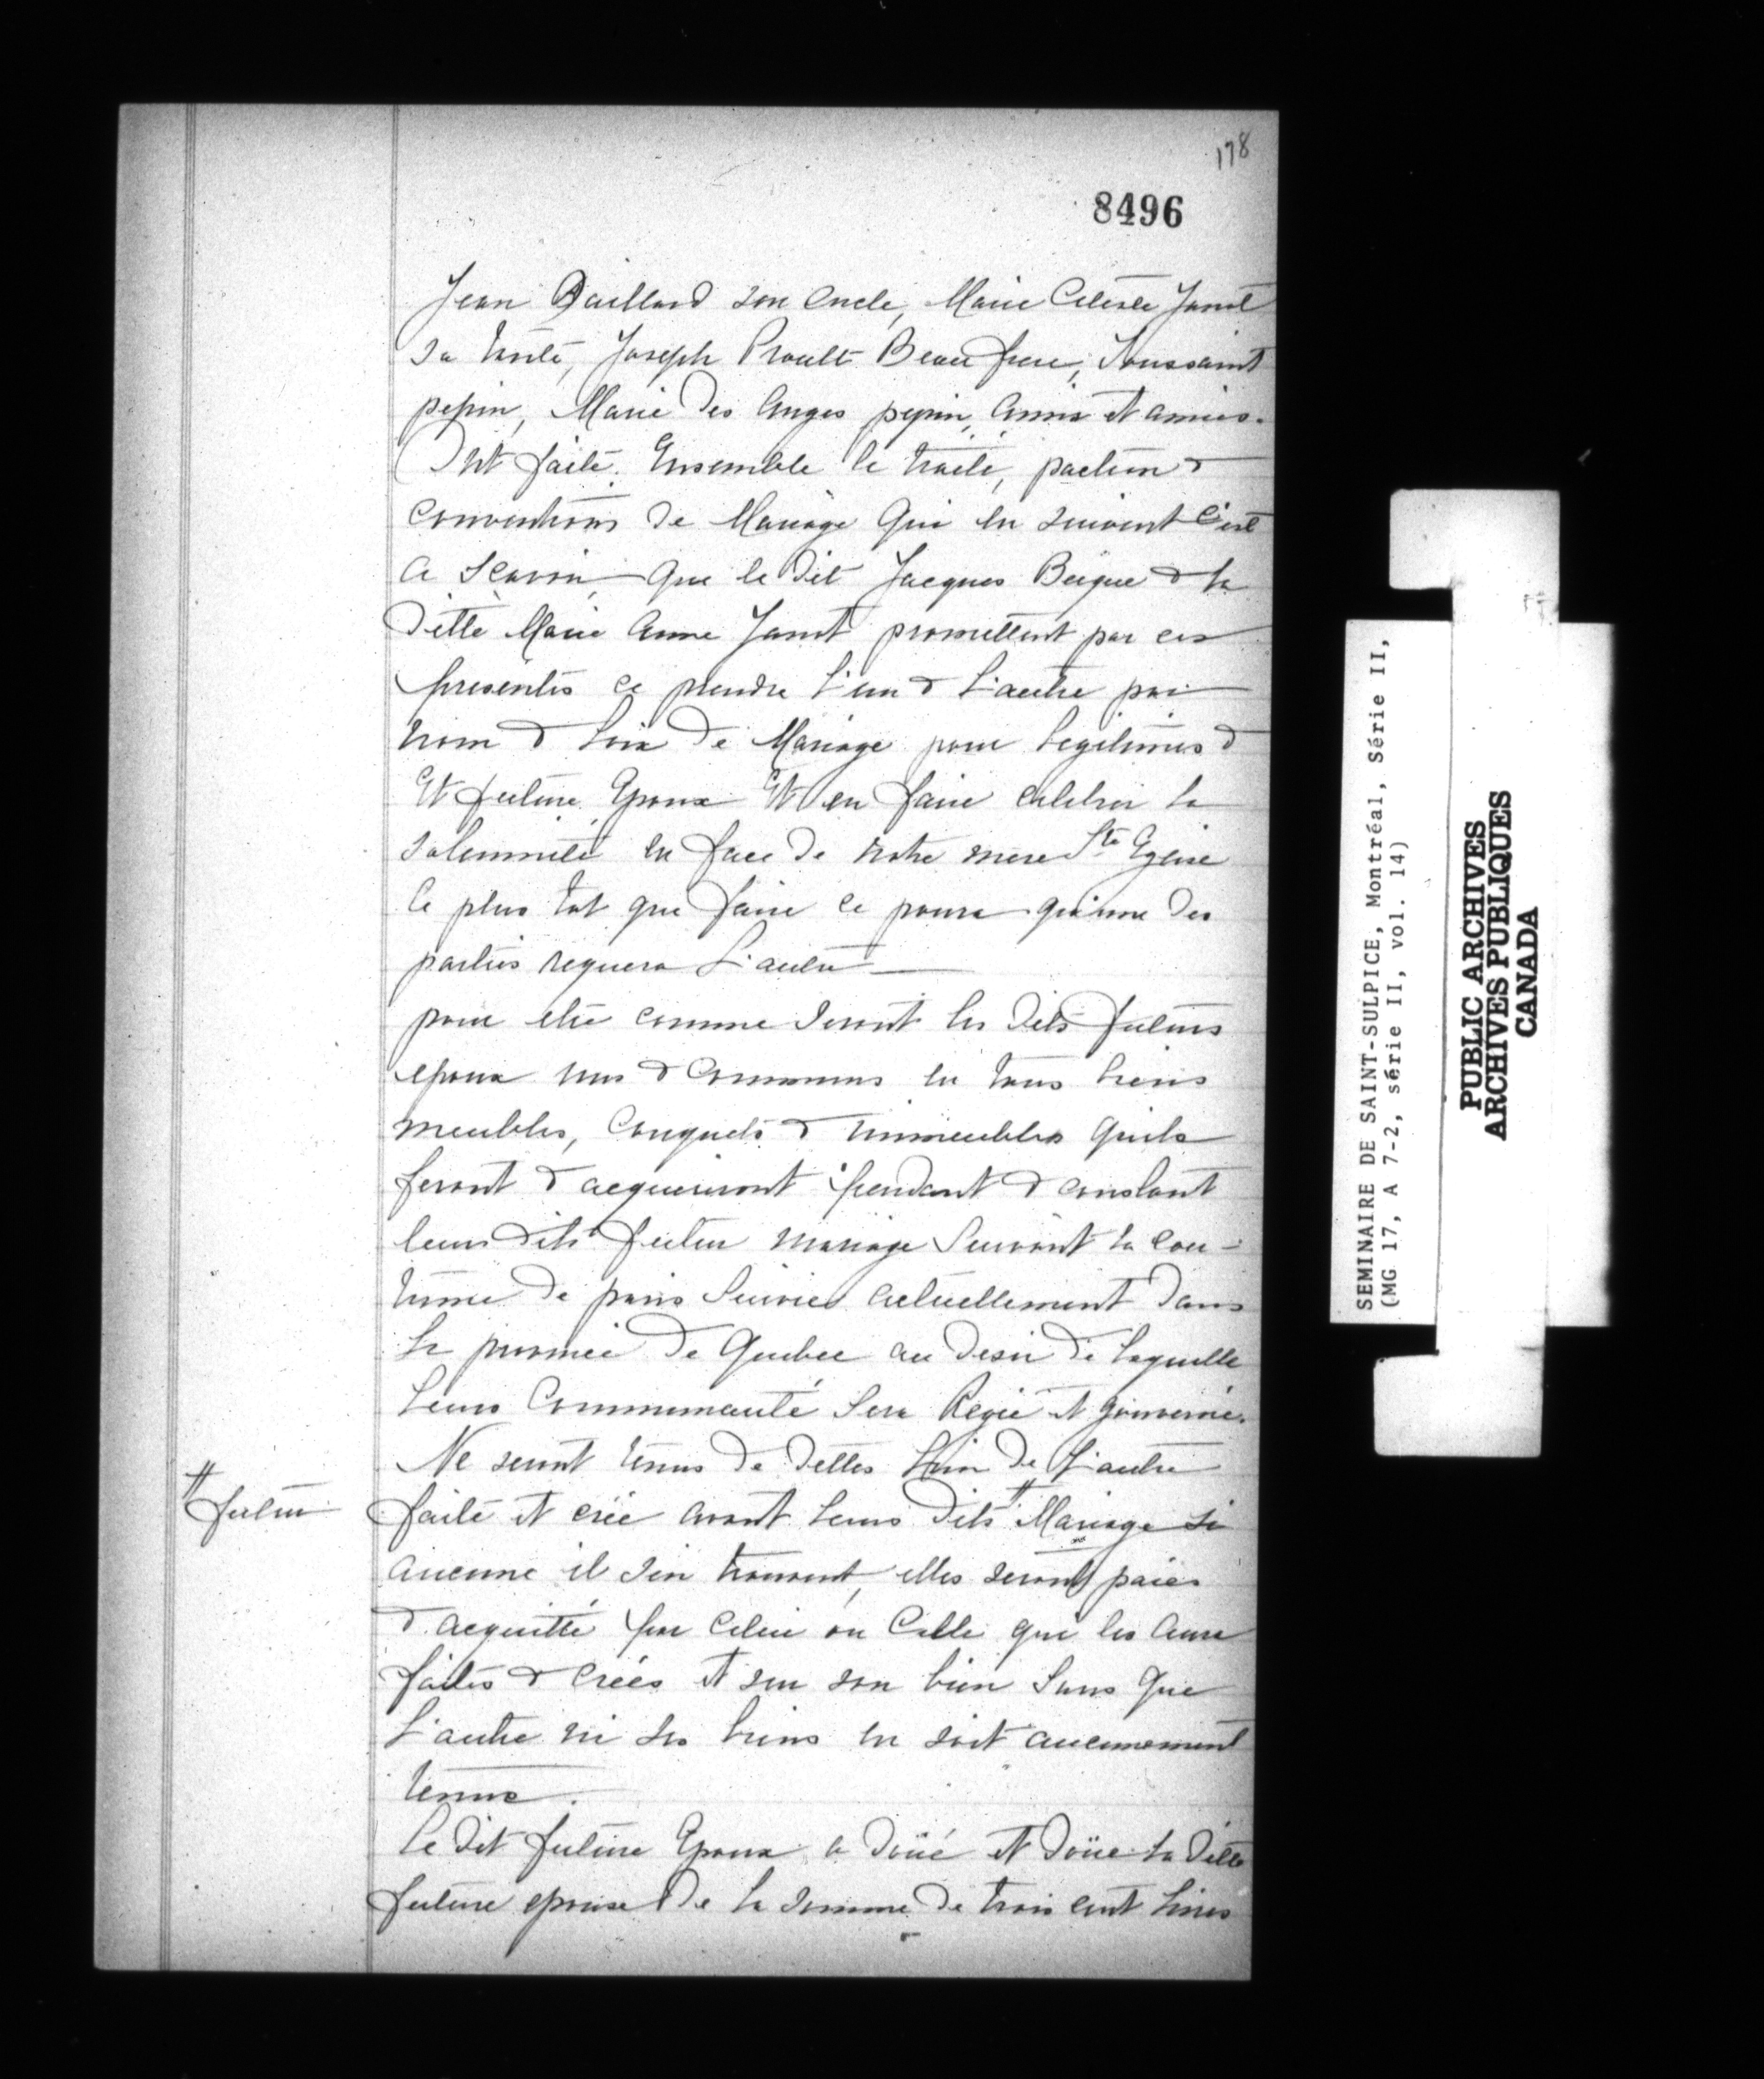 178
8496
Jean Baillard son oncle, Marie Celeste Janot
sa tante, Joseph Proult Beau frere, Toussaint
pepin, Marie des Anges pepin, Amis et amies.
Ont faite Ensemble le traité, paction &
conventions de Mariage Qui en suivent C'est
a scavoir, que le dit Jacques Beique & la
ditte Marie Anne Janot promettent par ces
presentes ce prendre l'un & L'autre par
nom & Loix de Mariage pour Legitimes &
Et future Epoux Et en faire celebrer la
solemnité en face de notre mere Ste Eglise
le plus tot que faire ce poura qu'une des
parties requera L'autre
pour etre comme seront les dits futurs
epoux uns & Communs en tous biens
meubles, Conquets & immeubles quils
feront & acqueriront pendant & constant
leurs dits futur mariage Suivant la cou-
tume de paris Suivies actuellement dans
la province de Quebec au desir de laquelle
Leurs Communauté Sera Regie et gouvernée.
Ne seront tenus de dettes L'un de L'autre
# futur
faite et crée avant Leurs dits # Mariage si
aucune il s'en trouvent, elles seront paies
& acquitté par Celui ou Celle qui les Aura
faites & Crées et sur son bien Sans que
L'autre ni ses biens en soit aucunement
tenue.
Le dit future Epoux a doüé et doüe la ditte
future epouse de la somme de trois cent livres
SEMINAIRE DE SAINT-SULPICE, Montréal, Série II,
(MG 17, A 7-2, série II, vol. 14)
PUBLIC ARCHIVES
ARCHIVES PUBLIQUES
CANADA